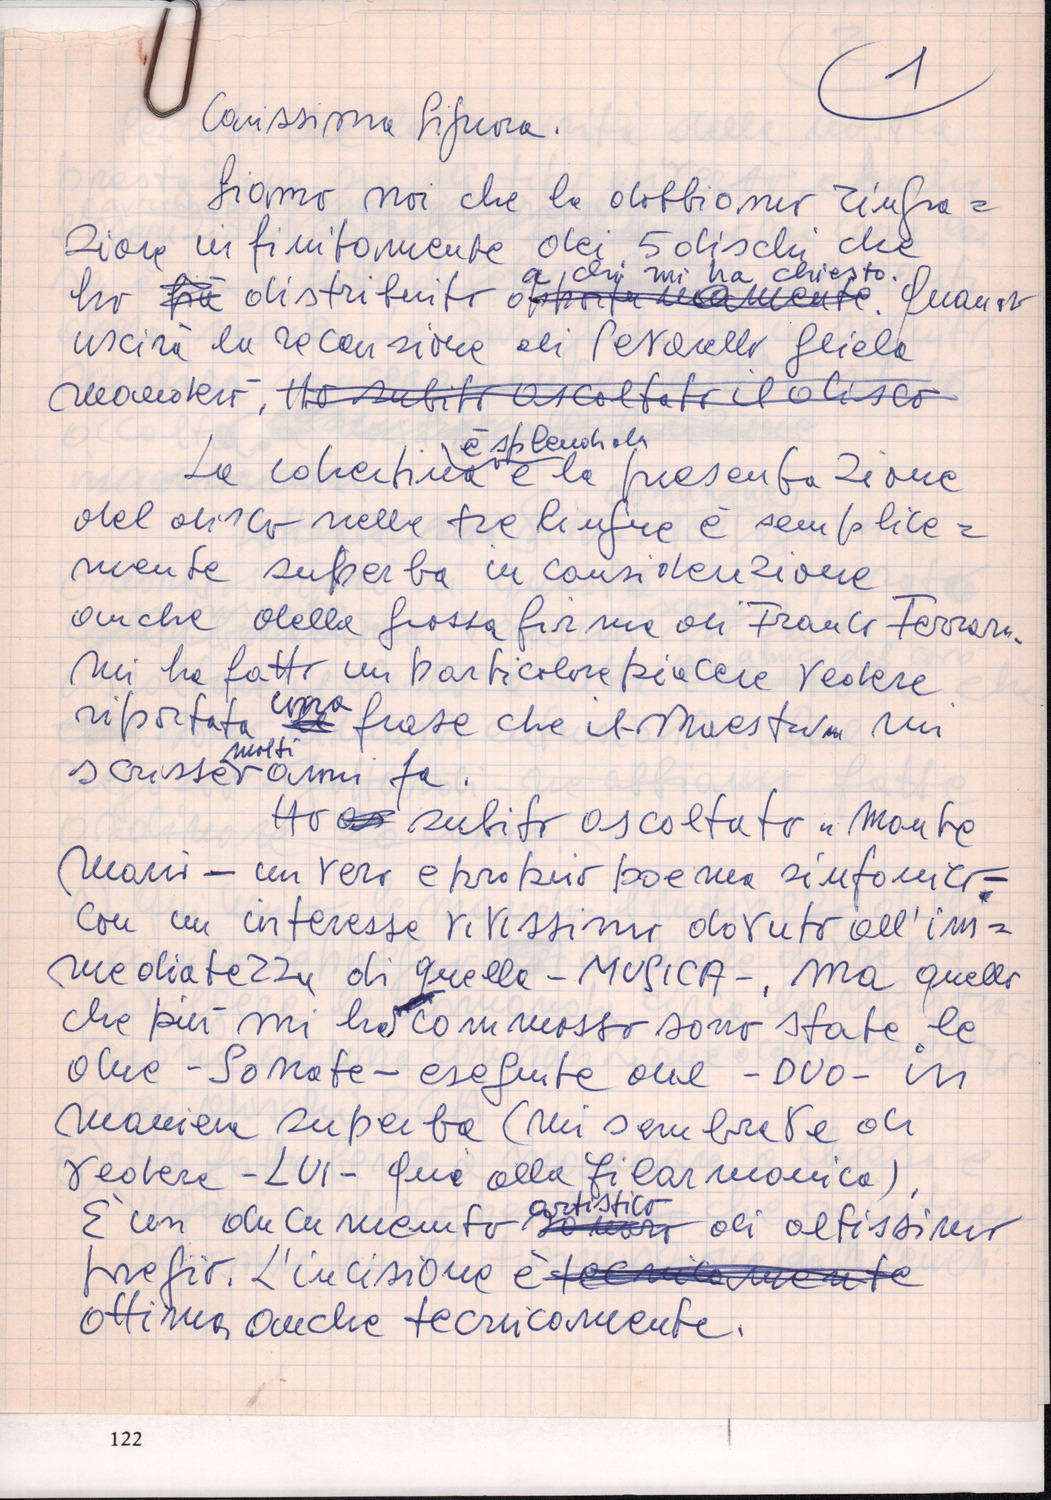 1
Carissima Signora.
Siamo noi che la dobbiamo ringra=
ziare infinitamente dei 5 dischi che
a chi mi ha chiesto.
ho già distribuito opportunamente. Quando
uscirà la recensione di Pevarello gliela
manderò, Ho subito ascoltato il disco
è splendida
La copertina e la presentazione
del disco nelle tre lingue è semplice=
mente superba in considerazione
anche della grossa firma di Franco Ferrara.
Mi ha fatto un particolare piacere vedere
riportata una frase che il Maestro mi
molti
scrisse anni fa.
Ho subito ascoltato " Monte
Mario — un vero e proprio poema sinfonico =
con un interesse vivissimo dovuto all'im=
mediatezza di quella - MUSICA -, ma quello
che più mi ha commosso sono state le
due - Sonate - eseguite dal - DUO - in
maniera superba (mi sembrava di
vedere - LUI - quà alla filarmonica),
artistico
È un documento sonoro di altissimo
pregio. L'incisione è tecnicamente
ottima anche tecnicamente.
122